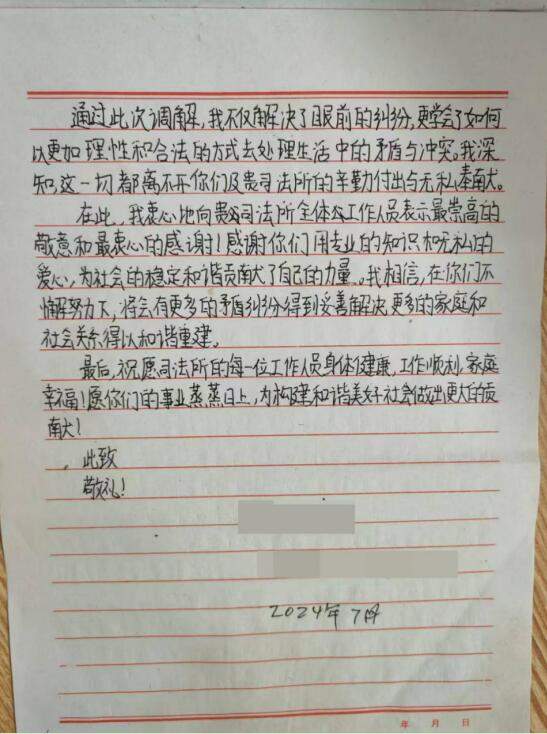 通过此次调解,我不仅解决了眼前的纠纷,更学会了如何
以更加理性和合法的方式去处理生活中的矛盾与冲突。我深
知,这一切都离不开你们及贵司法所的辛勤付出与无私奉献。
在此,我衷心地向贵司法所全体工作人员表示最崇高的
敬意和最衷心的感谢!感谢你们用专业的知识和无私的
爱心,为社会的稳定和谐贡献了自己的力量。我相信,在你们不
懈努力下,将会有更多的矛盾纠纷得到妥善解决,更多的家庭和
社会关系得以和谐重建。
最后,祝愿司法所的每一位工作人员身体健康,工作顺利,家庭
幸福!愿你们的事业蒸蒸日上,为构建和谐美好社会做出更大的贡
献!
此致
敬礼!
2024年7月
年 月 日